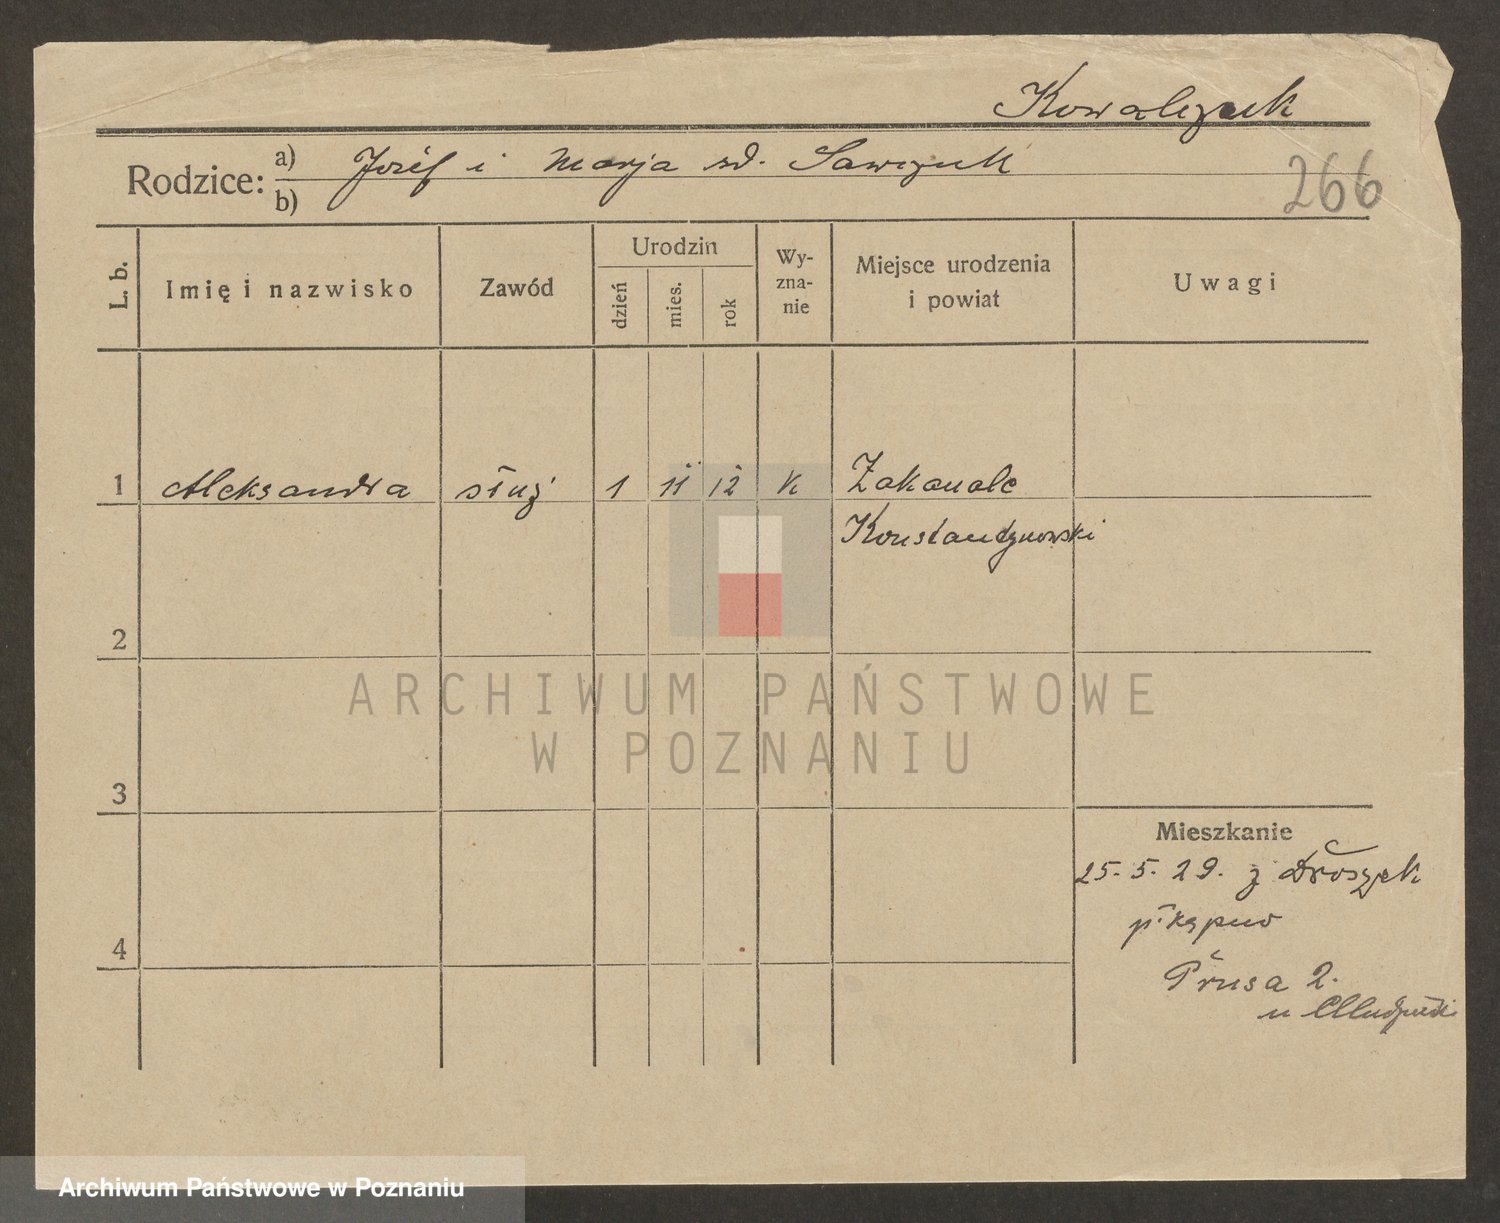 Kowalczuk
Rodzice: a) Józef i Marja zd. Sawczuk
b)
266
L. b.
Imię i nazwisko
Zawód
Urodzin
dzień
mies.
rok
Wy-
zna-
nie
Miejsce urodzenia
i powiat
Uwagi
1 Aleksandra służ 1 11 12 k Zakanale
Konstantynowski
2
3
4
Mieszkanie
25. 5. 29. z Droszek
p. Kępno
Prusa 2.
u
ARCHIWUM PAŃSTWOWE
W POZNANIU
Archiwum Państwowe w Poznaniu